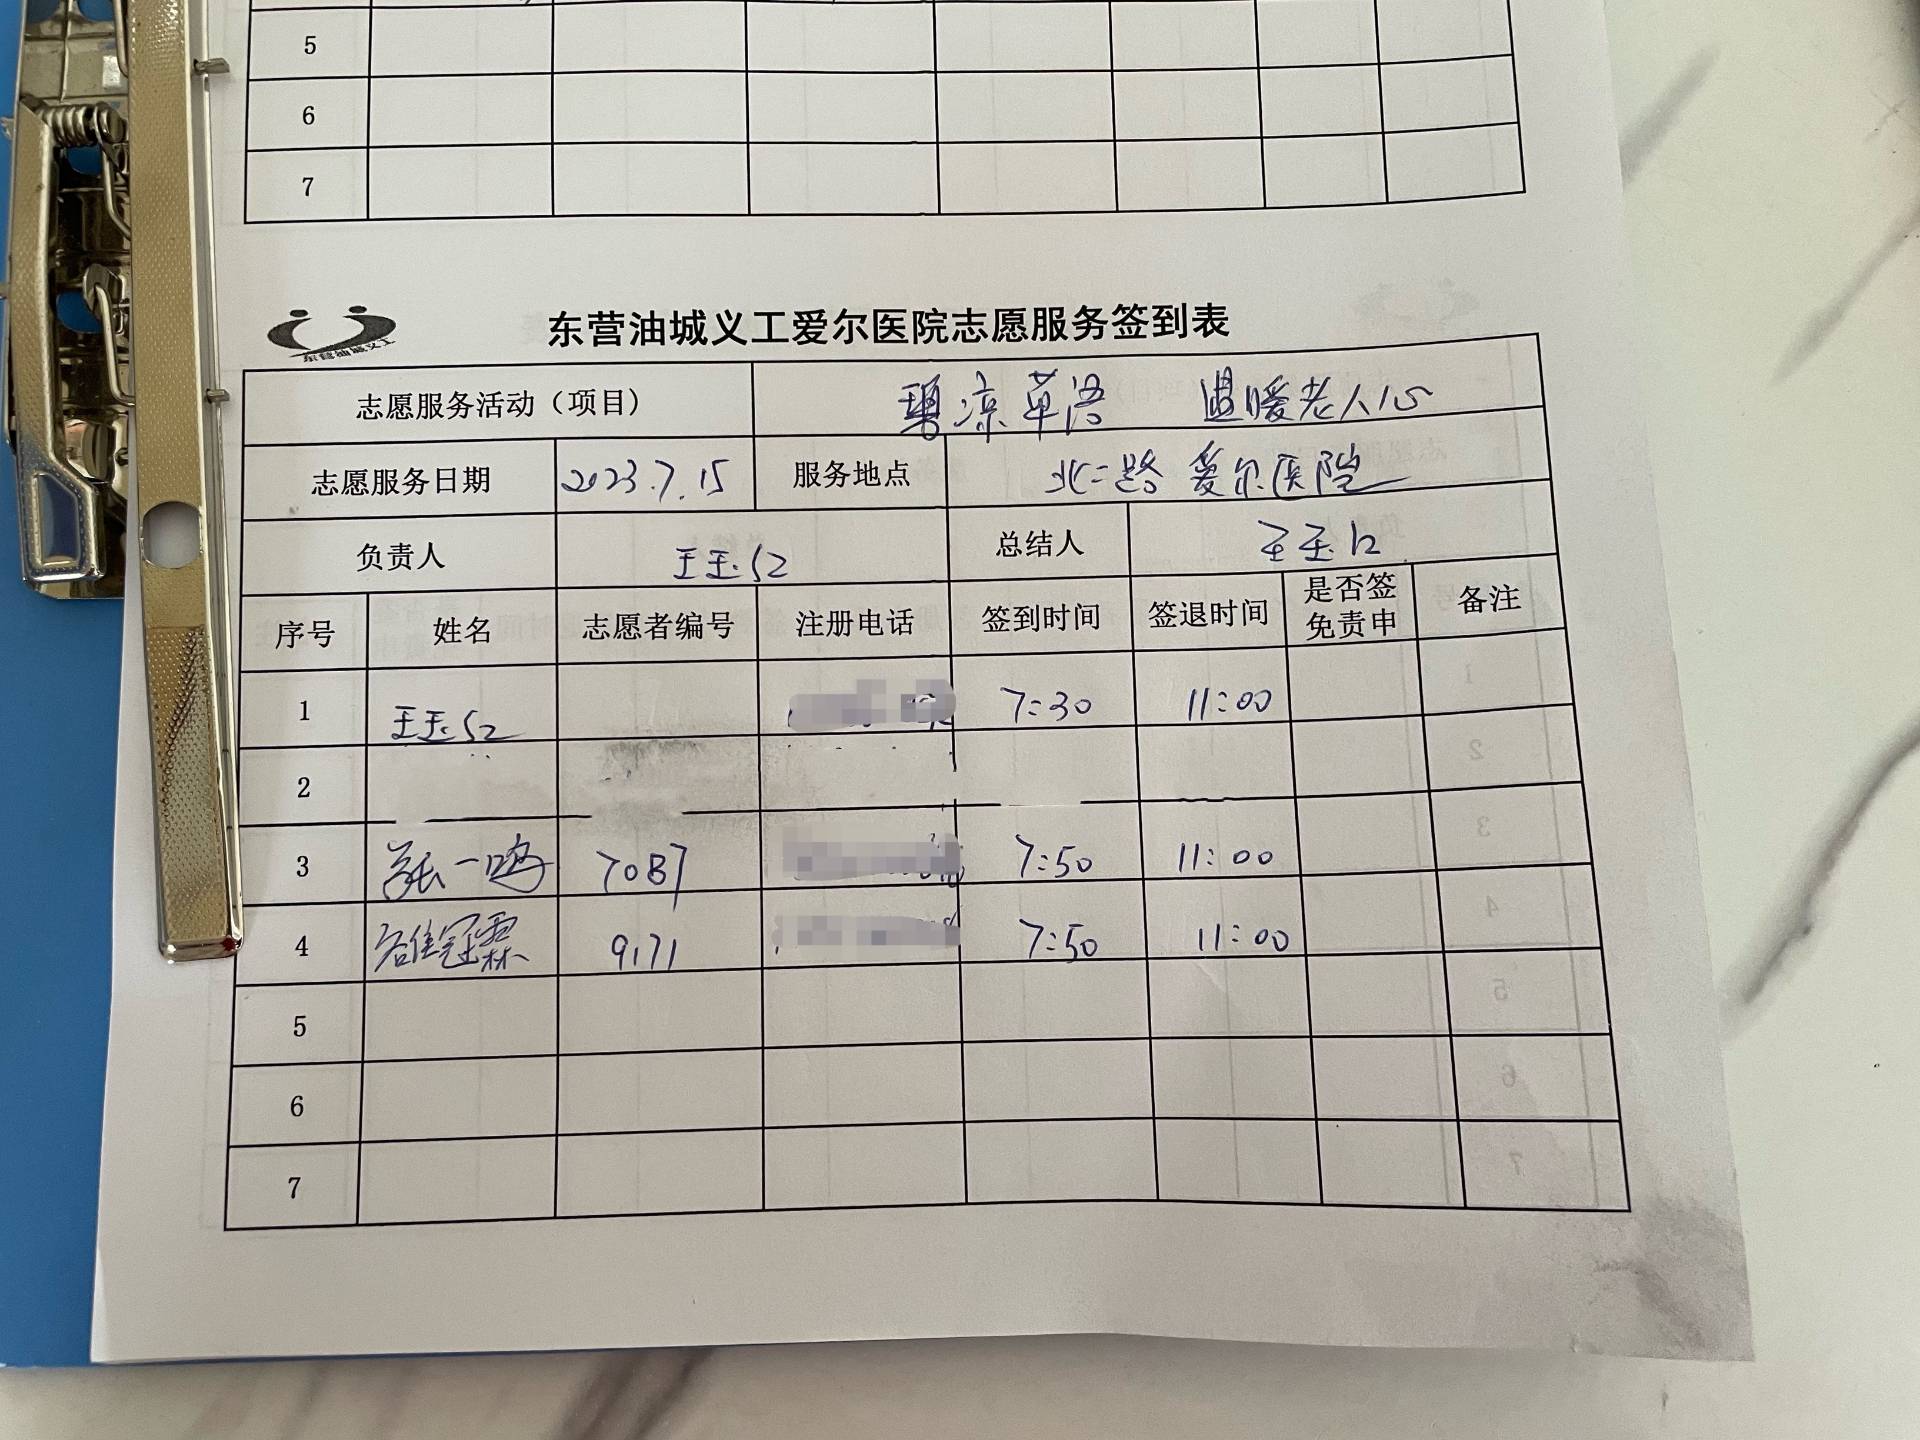 5
6
7
东营油城义工
东营油城义工爱尔医院志愿服务签到表
志愿服务活动（项目） 温暖老人心
志愿服务日期 2023.7.15 服务地点 北二路 爱尔医院
负责人 王玉红 总结人 王玉红
序号 姓名 志愿者编号 注册电话 签到时间 签退时间 是否签免责申 备注
1 王玉红 7:30 11:00
2
3 张一鸣 7087 7:50 11:00
4 冠霖 9171 7:50 11:00
5
6
7